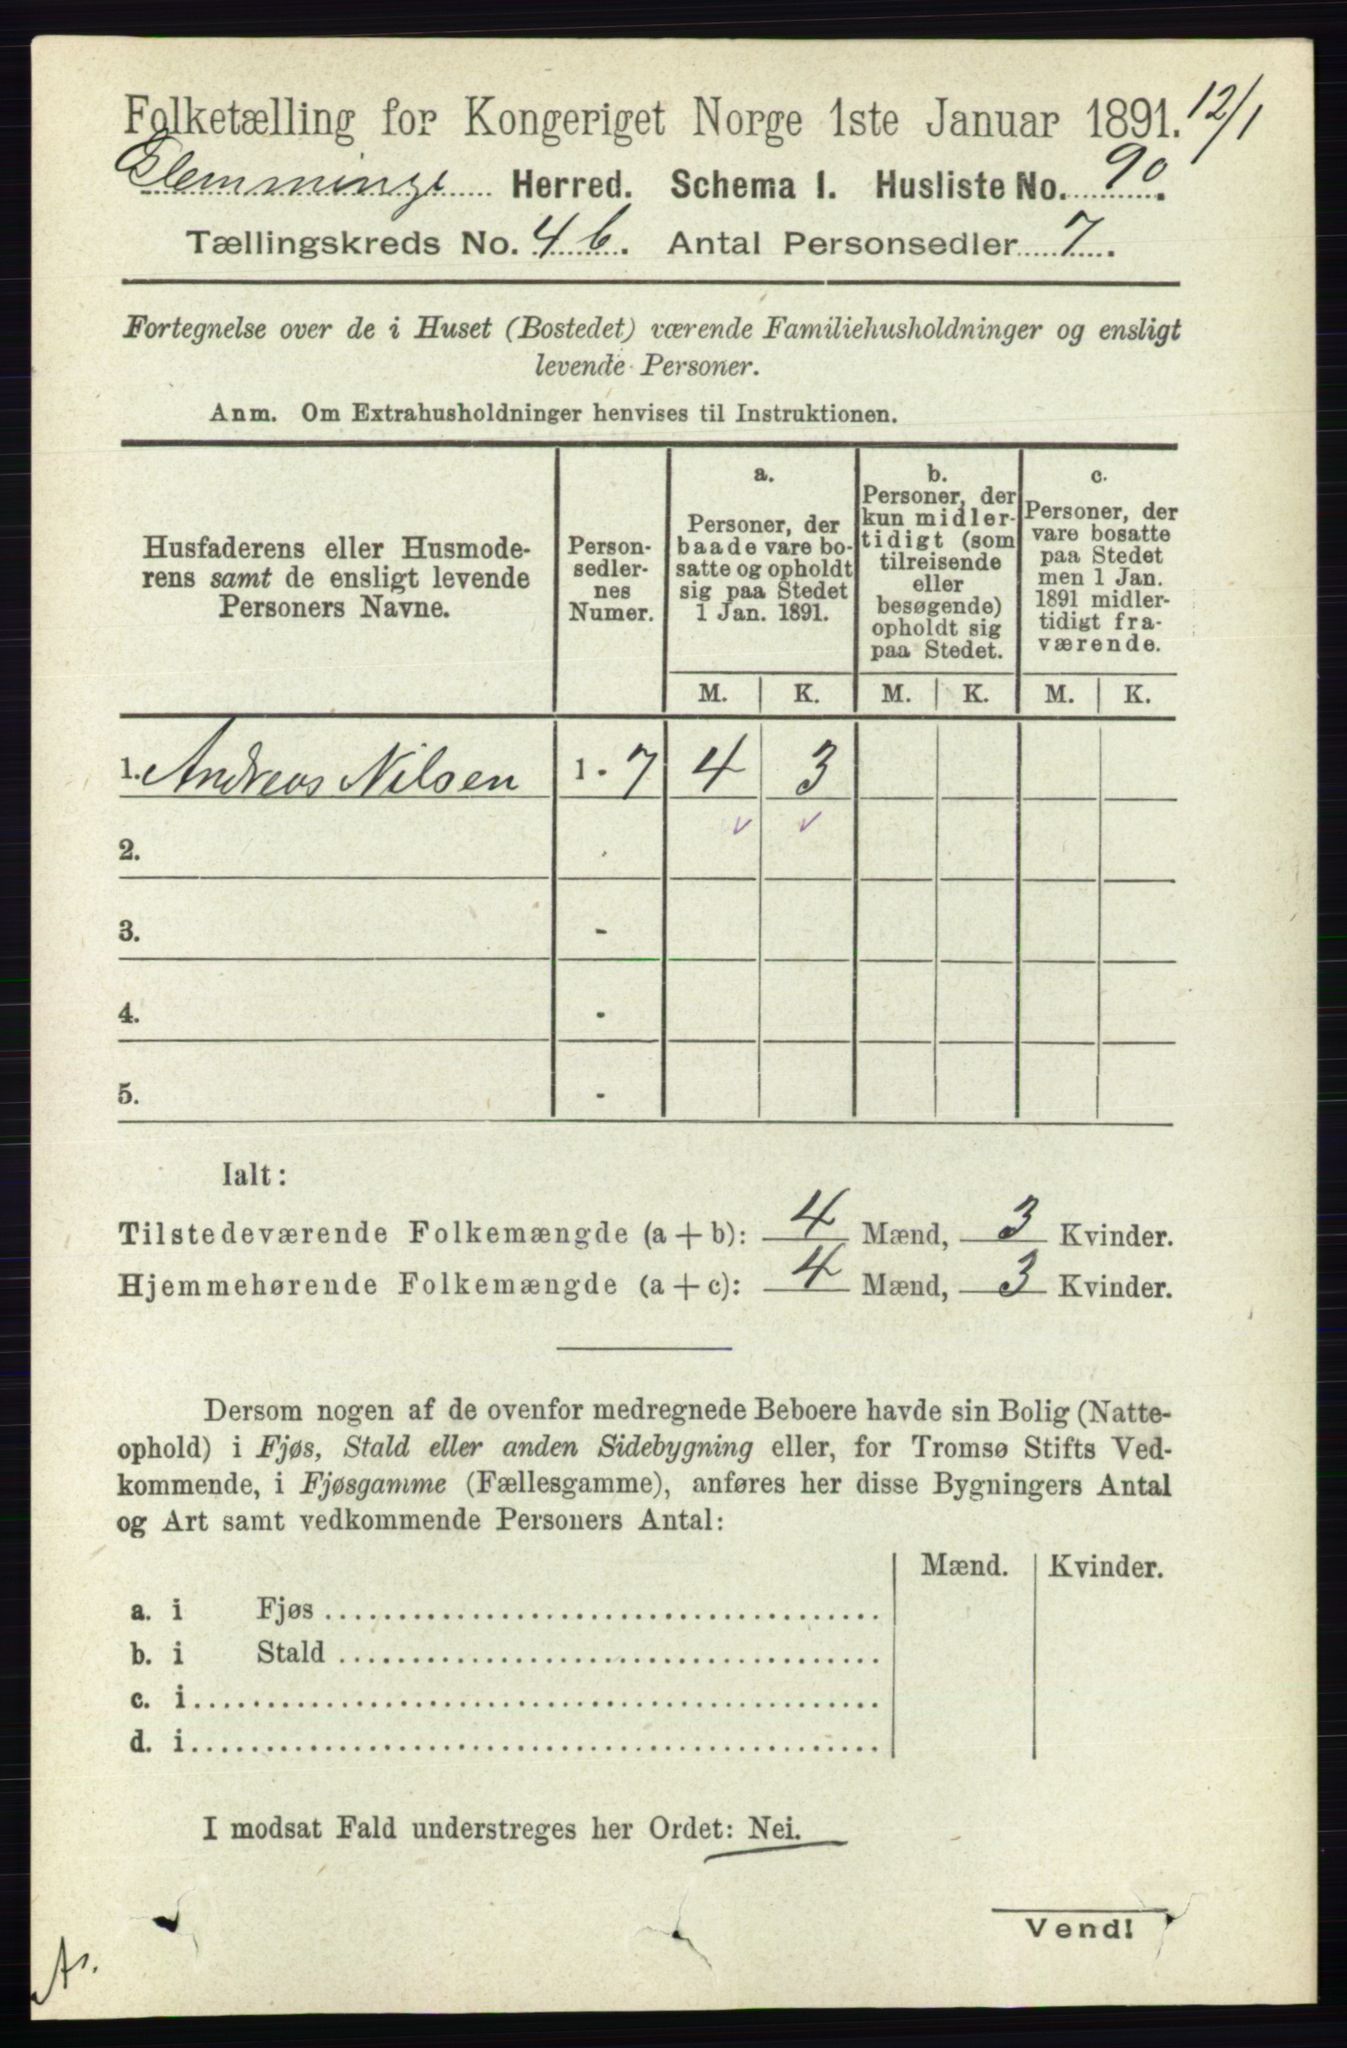 Folketælling for Kongeriget Norge 1ste Januar 1891. 12/1
Glemminge Herred. Schema I. Husliste No. 90.
Tællingskreds No. 4 b. Antal Personsedler 7.
Fortegnelse over de i Huset (Bostedet) værende Familiehusholdninger og ensligt
levende Personer.
Anm. Om Extrahusholdninger henvises til Instruktionen.
Husfaderens eller Husmode-
rens samt de ensligt levende
Personers Navne.
Person-
sedler-
nes
Numer.
a.
Personer, der
baade vare bo-
satte og opholdt
sig paa Stedet
1 Jan. 1891.
b.
Personer, der
kun midler-
tidigt (som
tilreisende
eller
besøgende)
opholdt sig
paa Stedet.
c.
Personer, der
vare bosatte
paa Stedet
men 1 Jan.
1891 midler-
tidigt fra-
værende.
M. K. M. K. M. K.
1. Andreas Nilsen 1 - 7 4 3
2.
3. -
4. -
5. -
Ialt:
Tilstedeværende Folkemængde (a + b): 4 Mænd, 3 Kvinder.
Hjemmehørende Folkemængde (a + c): 4 Mænd, 3 Kvinder.
Dersom nogen af de ovenfor medregnede Beboere havde sin Bolig (Natte-
ophold) i Fjøs, Stald eller anden Sidebygning eller, for Tromsø Stifts Ved-
kommende, i Fjøsgamme (Fællesgamme), anføres her disse Bygningers Antal
og Art samt vedkommende Personers Antal:
Mænd. Kvinder.
a. i Fjøs
b. i Stald
c. i
d. i
I modsat Fald understreges her Ordet: Nei.
Vend!